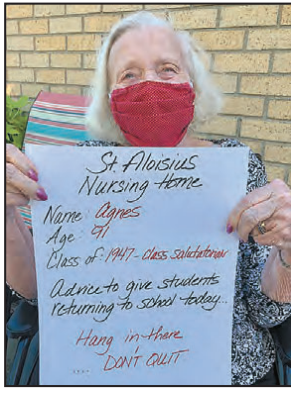 St. Aloisius
Nursing Home
Name: Agnes
Age: 91
Class of: 1947 - Class Salutatorian
Advice to give students
returning to school today...
Hang in there
DON'T QUIT